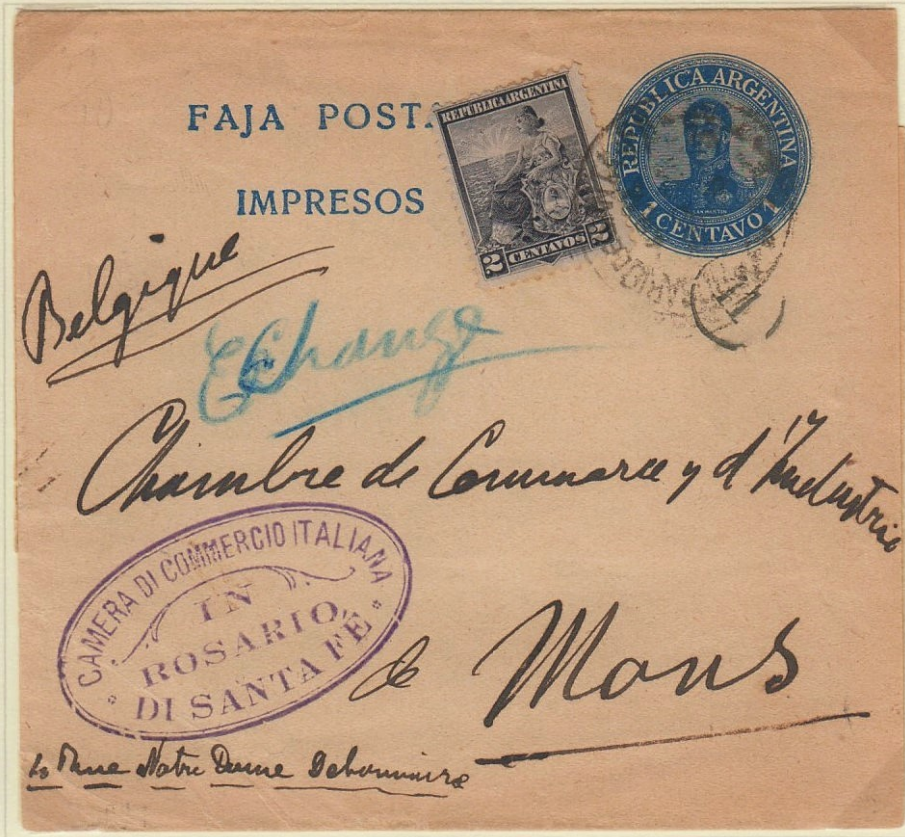 FAJA POSTA
IMPRESOS
REPUBLICA ARGENTINA
2 CENTAVOS 2
REPUBLICA ARGENTINA
SAN MARTIN
1 CENTAVO 1
Belgique
Echange
Chambre de Commerce y d'Industrie
de Mons
CAMERA DI COMMERCIO ITALIANA
IN
ROSARIO
DI SANTA FÈ
Rue Notre Dame Debonnaire